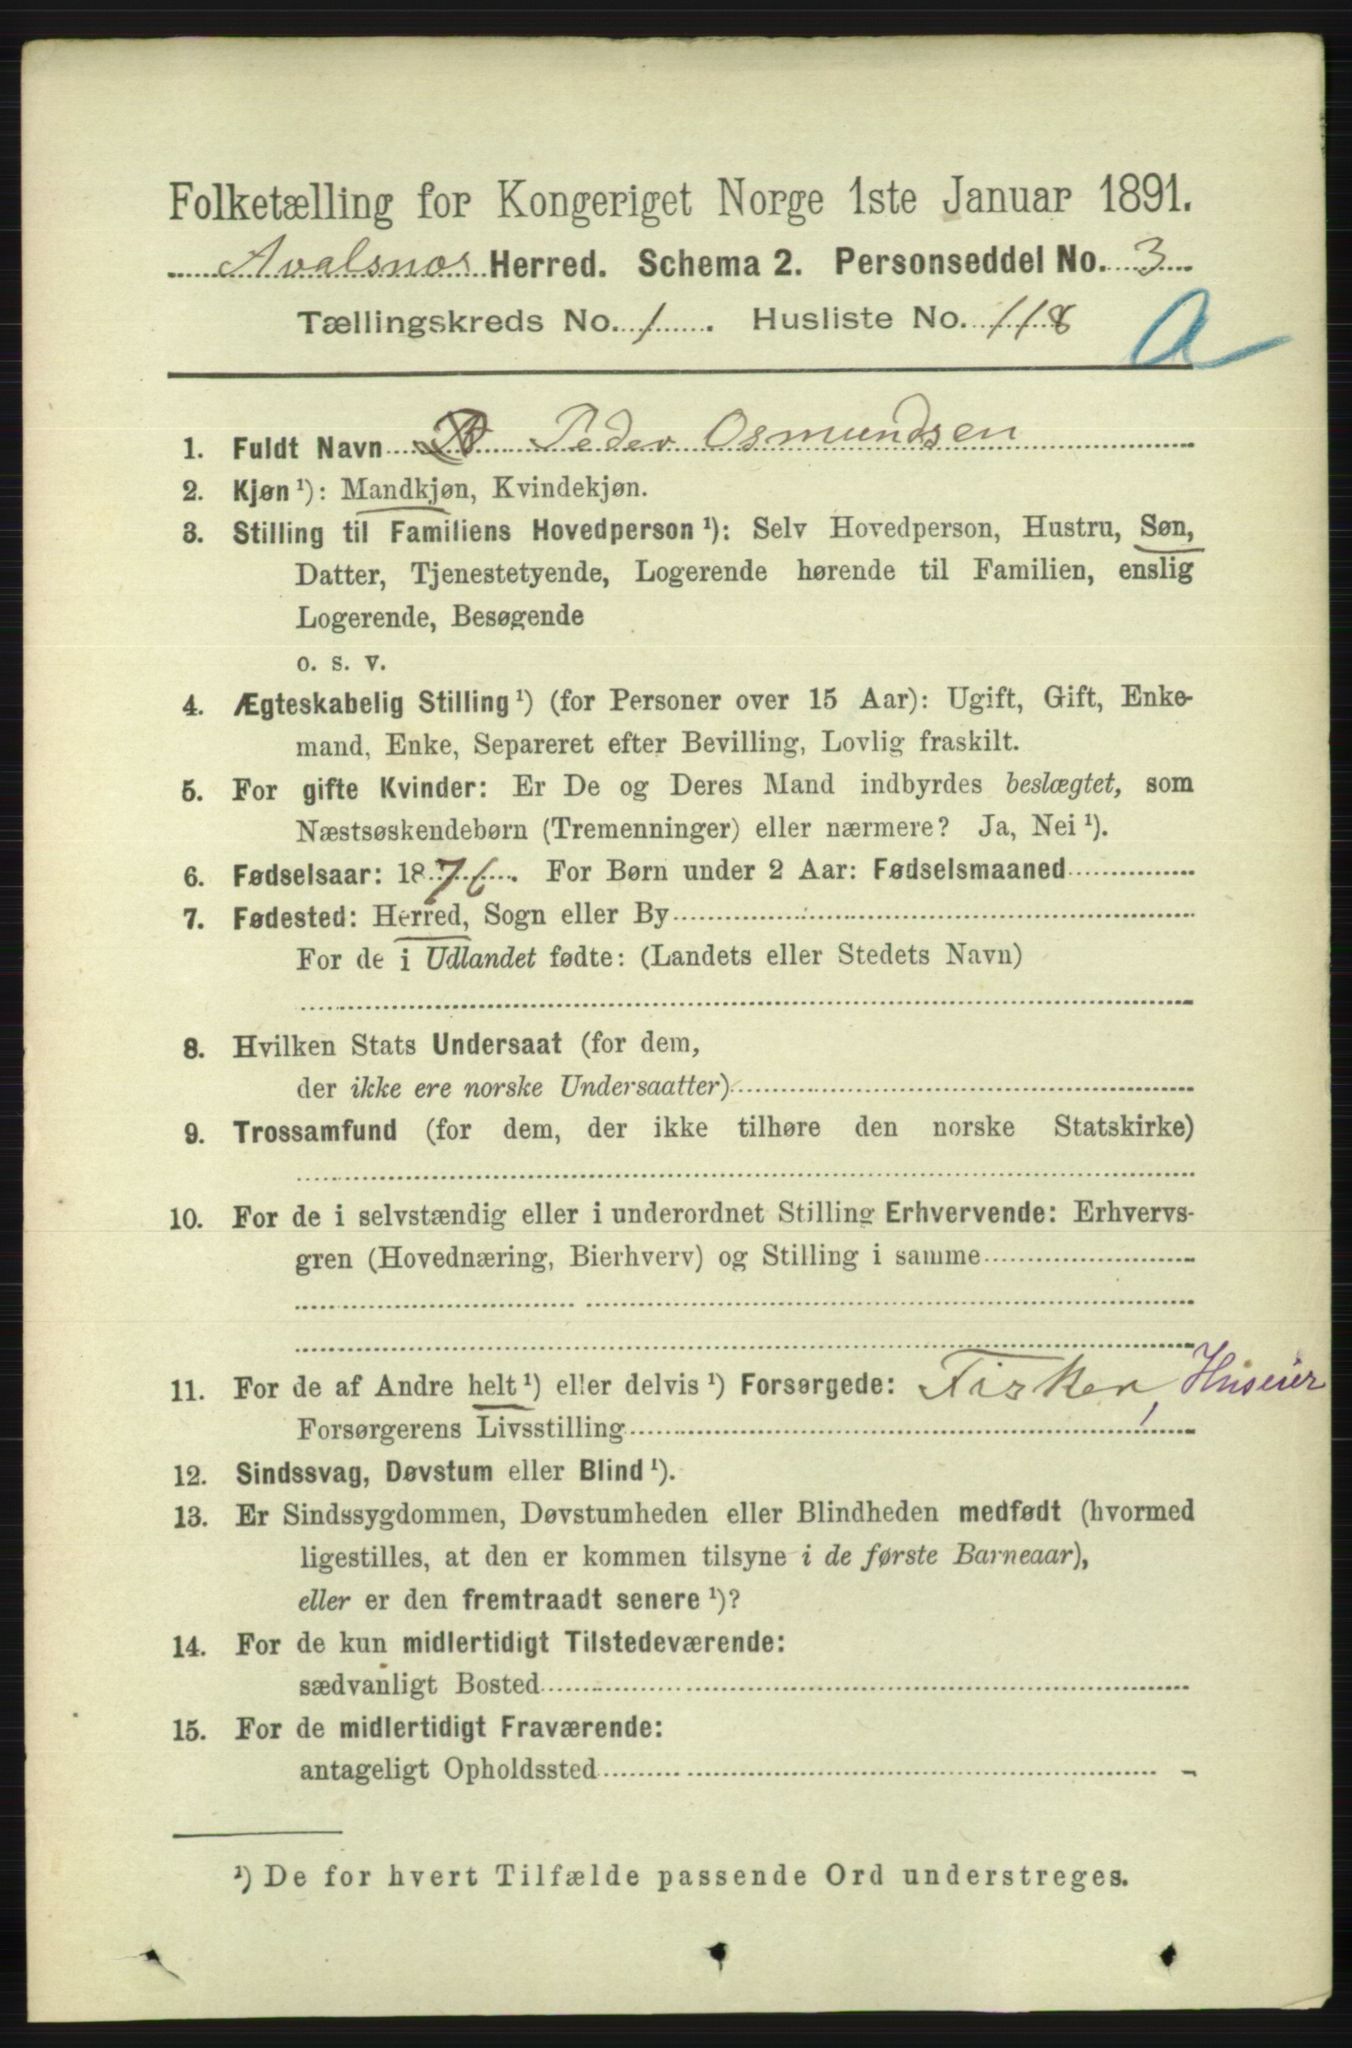 Folketælling for Kongeriget Norge 1ste Januar 1891.
Avalsnæs Herred. Schema 2. Personseddel No. 3
Tællingskreds No. 1. Husliste No. 118
A
1. Fuldt Navn Peder Osmundsen
2. Kjøn ¹): Mandkjøn, Kvindekjøn.
3. Stilling til Familiens Hovedperson ¹): Selv Hovedperson, Hustru, Søn,
Datter, Tjenestetyende, Logerende hørende til Familien, enslig
Logerende, Besøgende
o. s. v.
4. Ægteskabelig Stilling ¹) (for Personer over 15 Aar): Ugift, Gift, Enke-
mand, Enke, Separeret efter Bevilling, Lovlig fraskilt.
5. For gifte Kvinder: Er De og Deres Mand indbyrdes beslægtet, som
Næstsøskendebørn (Tremenninger) eller nærmere? Ja, Nei ¹).
6. Fødselsaar: 1876. For Børn under 2 Aar: Fødselsmaaned
7. Fødested: Herred, Sogn eller By
For de i Udlandet fødte: (Landets eller Stedets Navn)
8. Hvilken Stats Undersaat (for dem,
der ikke ere norske Undersaatter)
9. Trossamfund (for dem, der ikke tilhøre den norske Statskirke)
10. For de i selvstændig eller i underordnet Stilling Erhvervende: Erhvervs-
gren (Hovednæring, Bierhverv) og Stilling i samme
11. For de af Andre helt ¹) eller delvis ¹) Forsørgede: Fisker, Huseier
Forsørgerens Livsstilling
12. Sindssvag, Døvstum eller Blind ¹).
13. Er Sindssygdommen, Døvstumheden eller Blindheden medfødt (hvormed
ligestilles, at den er kommen tilsyne i de første Barneaar),
eller er den fremtraadt senere ¹)?
14. For de kun midlertidigt Tilstedeværende:
sædvanligt Bosted
15. For de midlertidigt Fraværende:
antageligt Opholdssted
¹) De for hvert Tilfælde passende Ord understreges.